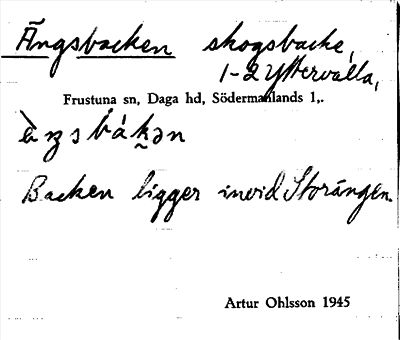 Ängsbacken skogsbacke,
1-2 Yttervalla,
Frustuna sn, Daga hd, Södermanlands l.,
Backen ligger invid Storängen.
Artur Ohlsson 1945